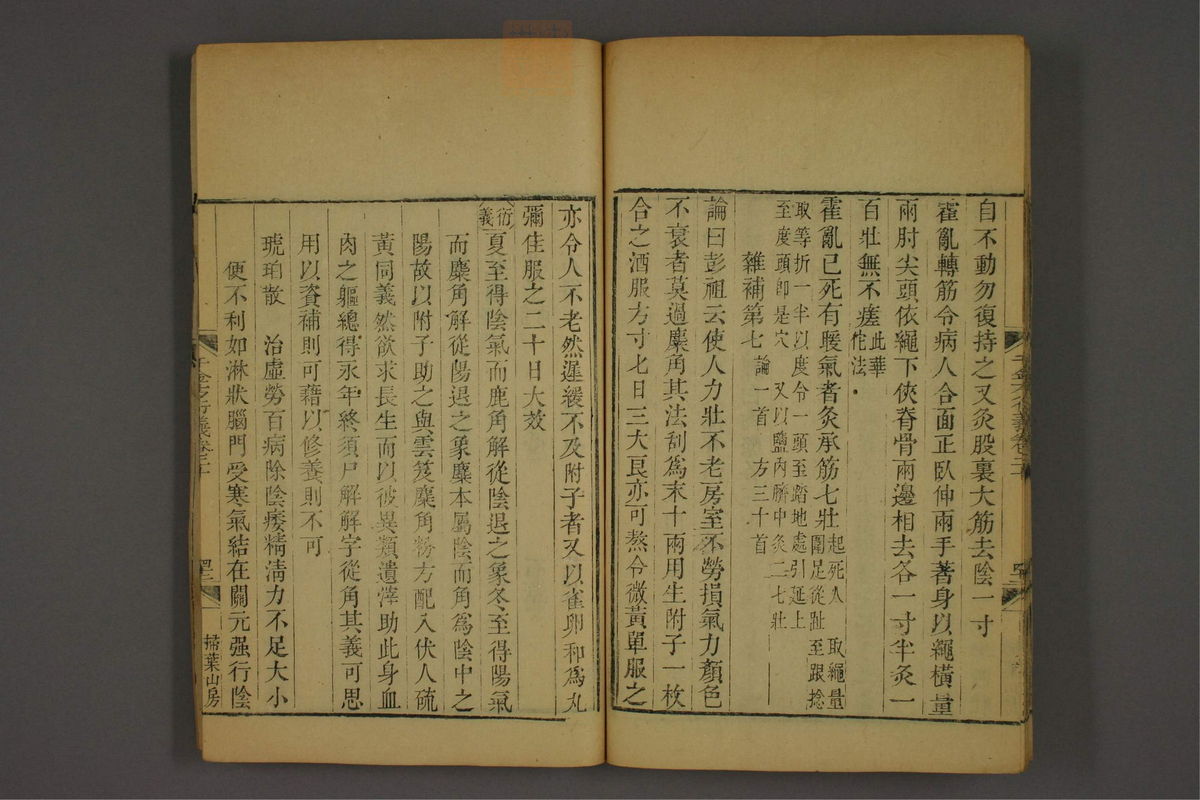 自不動勿復持之又灸股裏大筋去陰一寸
霍亂轉筋令病人合面正臥伸兩手著身以繩橫量
兩肘尖頭依繩下俠脊骨兩邊相去各一寸半灸一
百壯無不瘥此華佗法
霍亂已死有暖氣者灸承筋七壯起死人取繩量圍足從趾至跟捻
取等折一半以度令一頭至踏地處引延上至度頭卽是穴又以鹽內臍中灸二七壯
雜補第七論一首方三十首
論曰彭祖云使人力壯不老房室不勞損氣力顏色
不衰者莫過麋角其法刮爲末十兩用生附子一枚
合之酒服方寸七日三大良亦可熬令微黃單服之
千金方衍義卷二十
亦令人不老然遲緩不及附子者又以雀卵和爲丸
彌佳服之二十日大效
衍義夏至得陰氣而鹿角解從陰退之象冬至得陽氣
而麋角解從陽退之象麋本屬陰而角爲陰中之
陽故以附子助之與雲笈麋角粉方配入伏人硫
黃同義然欲求長生而以彼異類遺滓助此身血
肉之軀總得永年終須尸解解字從角其義可思
用以資補則可藉以修養則不可
琥珀散 治虛勞百病除陰痿精淸力不足大小
便不利如淋狀腦門受寒氣結在關元强行陰
千金方衍義卷二十
掃葉山房